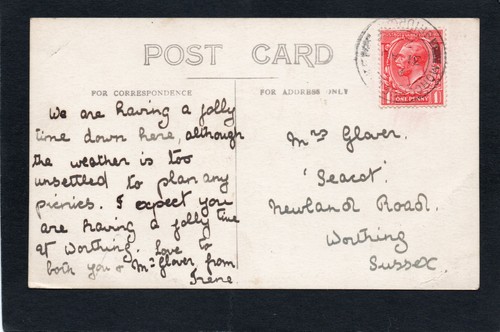 POST CARD
FOR CORRESPONDENCE
FOR ADDRESS ONLY
We are having a jolly
time down here, although
the weather is too
unsettled to plan any
picnics. I expect you
are having a jolly time
at Worthing. Love to
both you & Mr Glover from
Irene.
ONE PENNY
Mrs Glover.
'Seacot'.
Newland Road.
Worthing
Sussex.